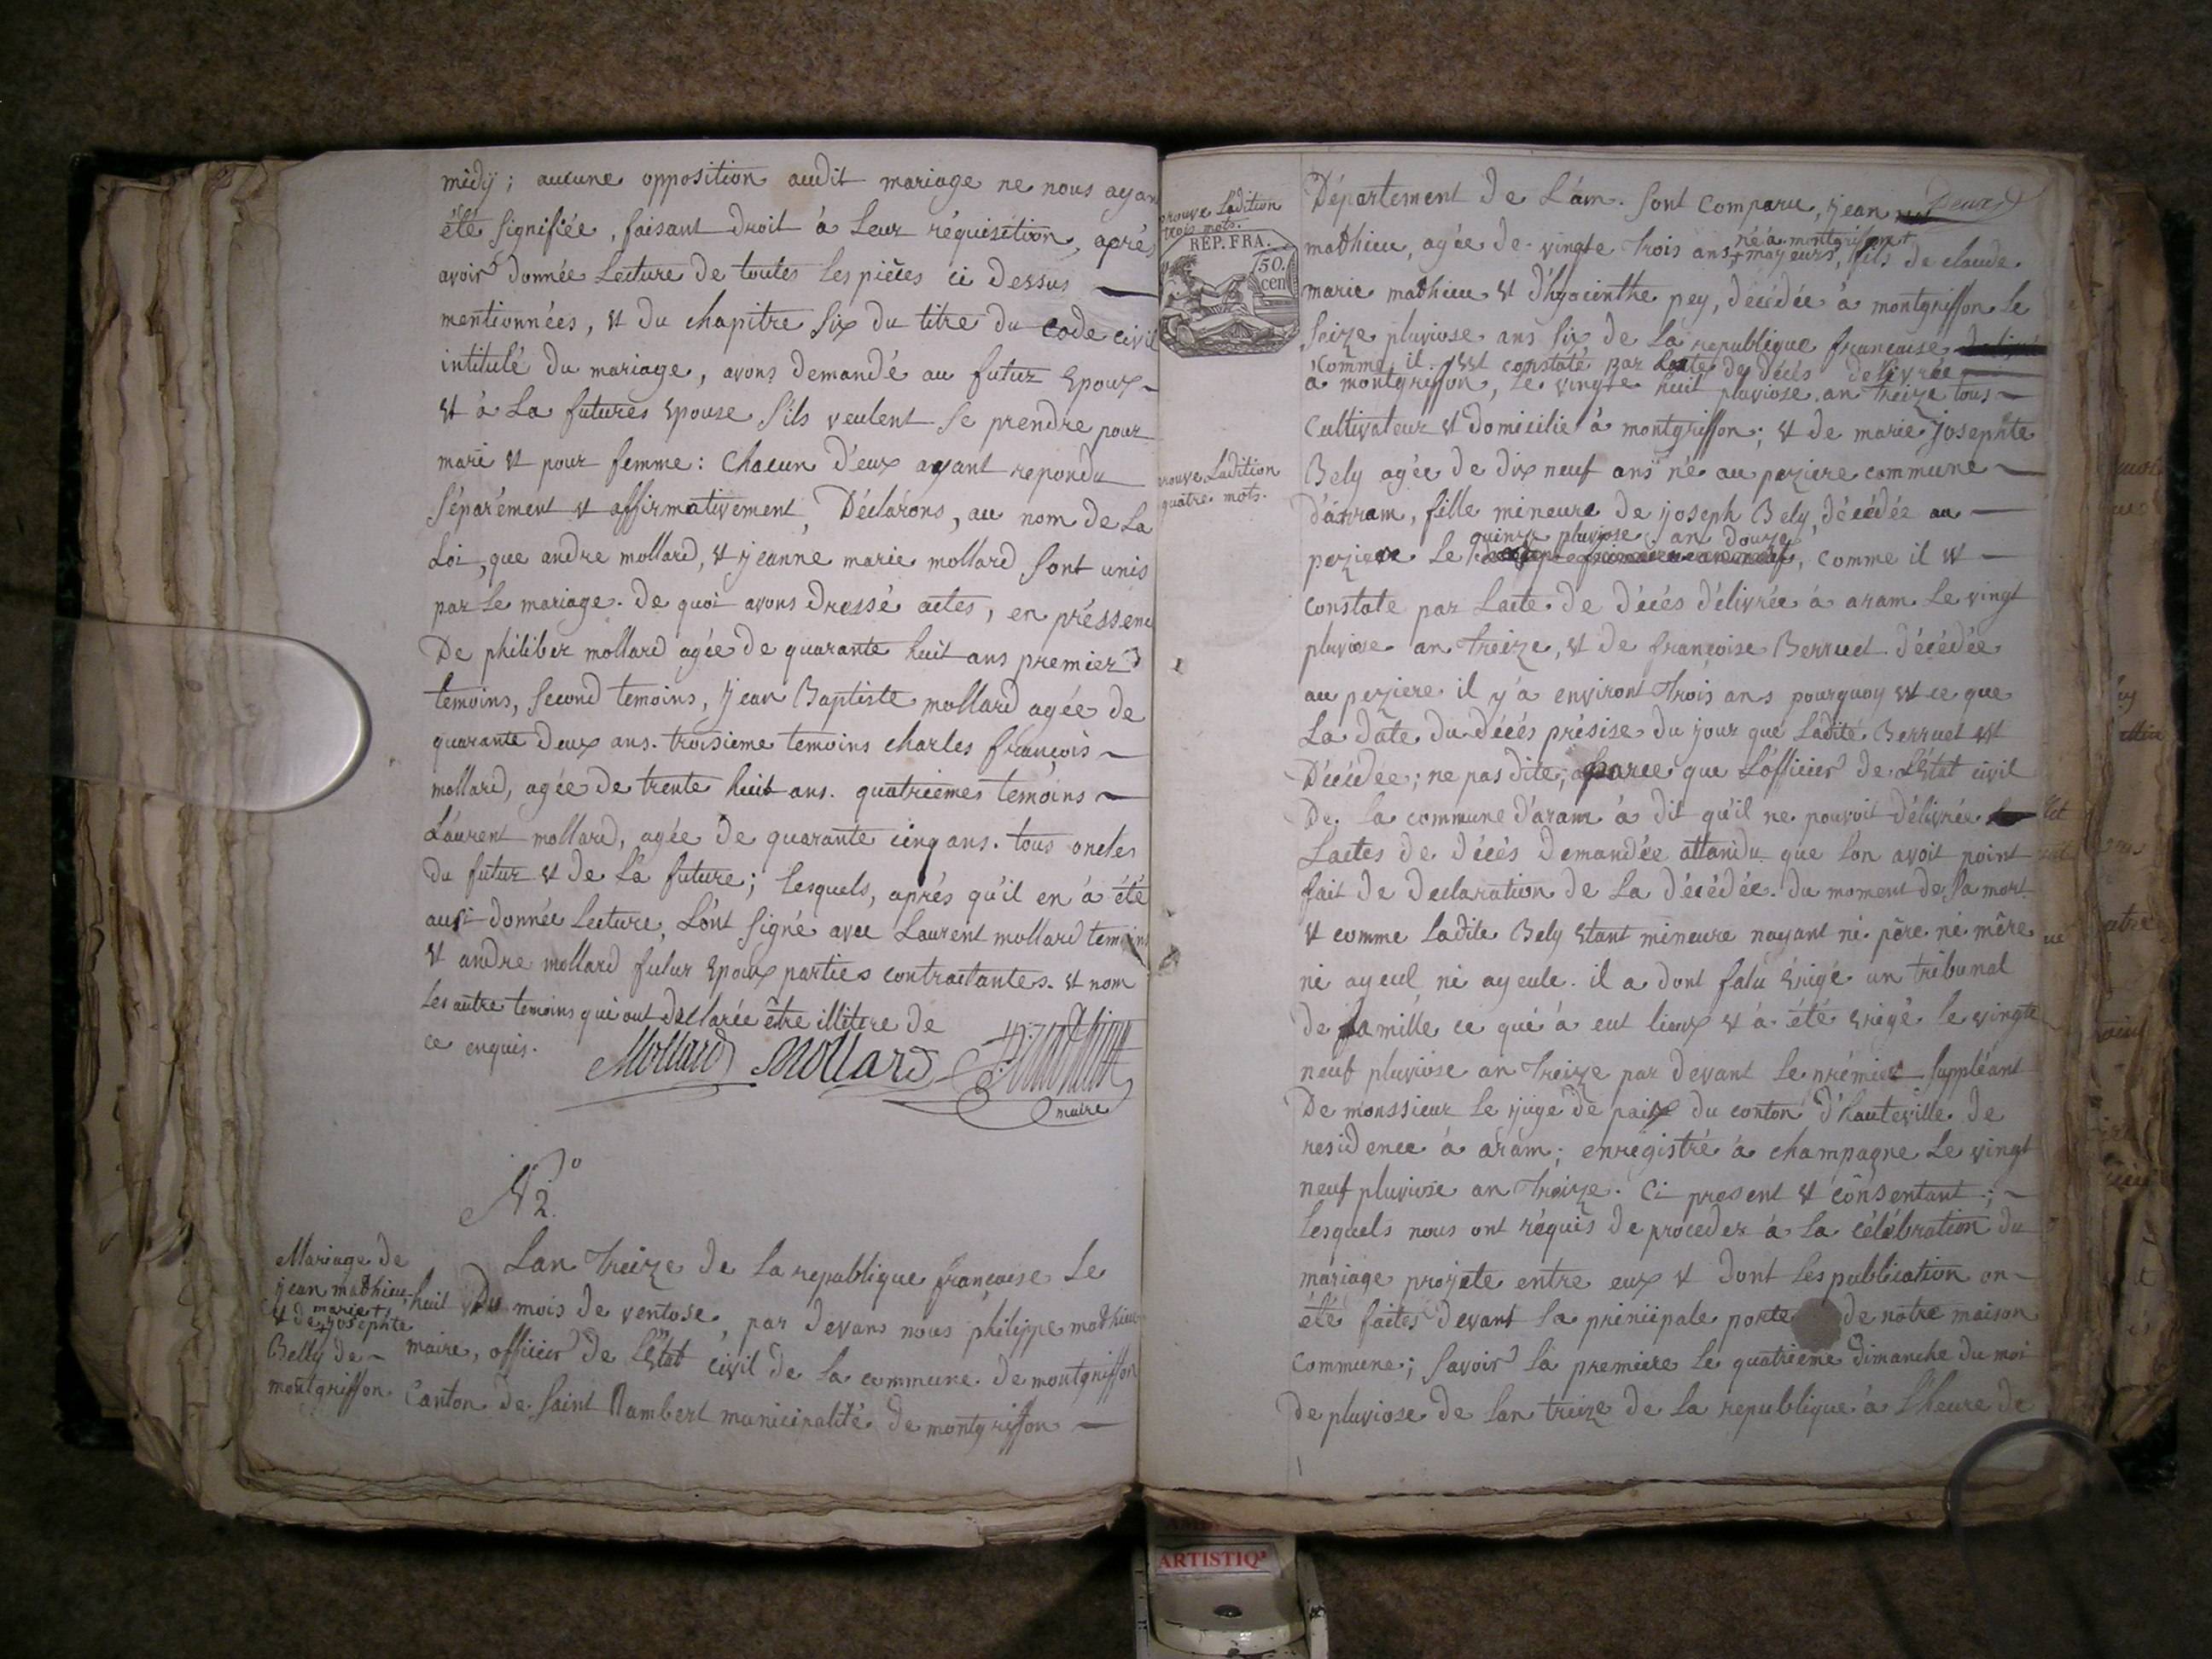 midÿ; aucune opposition audit mariage ne nous ayan
été signifiée, faisant droit à leur réquisition, aprés
avoir donnée lecture de toutes les piéces ci dessus
mentionnées, et du chapitre six du titre du code civil
intitulé du mariage, avons demandé au futur epoux
et à la futures epouse s'ils veulent se prendre pour
mari et pour femme: chacun d'eux ayant repondu
séparément et affirmativement, Déclarons, au nom de la
Loi, que andre mollard, et jeanne marie mollard sont unis
par le mariage. de quoi avons dressé actes, en préssenc
De philiber mollard agée de quarante huit ans premier
temoins, second temoins, jean Baptiste mollard agée de
quarante deux ans. troisieme temoins charles françois
mollard, agée de trente huit ans. quatriemes temoins
Laurent mollard, agée de quarante cinq ans. tous oncles
du futur et de la future; lesquels, aprés qu'il en à été
ausi donnée lecture, l'ont signé avec Laurent mollard temoins
et andre mollard futur epoux parties contractantes. et nom
les autre temoins qui ont déclarée être illitere de
ce enquis.
Mollard mollard
maire
N°2.
Mariage de
jean mathieu
et de marie
josephte
Belly de
montgriffon
Lan treize de la republique française le
huit du mois de ventose, par devans nous philippe mathieu
maire, officier de l'Etat civil de la commune de montgriffon
Canton de saint Rambert municipalité de montgriffon
Deux
Département de L'ain. sont comparu, jean
rouve ladition
trois mots.
REP. FRA.
50.
cen
mathieu, agée de vingte trois ans, né à montgriffon
majeurs, fils de claude
marie mathieu et d'hyacinthe pey, décédée à montgriffon le
seize pluviose ans six de la republique française
comme il est constaté par lacte de décés délivrée
a montgriffon, le vingte huit pluviose an treize tous
cultivateur et domicilié à montgriffon; et de marie josephte
Bely agée de dix neuf ans né au peziere commune
rouve ladition
quatre mots.
d'aram, fille mineure de joseph Bely, décédée au
quinze pluviose an douze
peziere le, comme il et
constate par lacte de décés délivrée à aram le vingt
pluviose an treize, et de françoise Berruet décédée
au peziere il y'à environt trois ans pourquoy et ce que
La date du décés présise du jour que ladite Berruet est
Décédée; ne pas dite; parce que l'officier de l'Etat civil
De la commune d'aram à dit qu'il ne pouvoit délivrée
Lactes de décés demandée attandu que l'on avoit point
fait de declaration de la décédée du moment de sa mort
et comme ladite Bely etant mineure nayant ni pére ni mère
ni ayeul ni ayeule. il a dont falu érigé un tribunal
de famille ce qué à eut lieux et à été erigé le vingte
neuf pluviose an treize par devant le prémier suppléant
De monssieur le juge de paix du conton d'hauteville de
residence à aram; enregistré à champagne le vingt
neuf pluviose an treize. Ci present et consentant;
lesquels nous ont réquis de proceder à la célébration du
mariage projete entre eux et dont les publication on
été faites devant la prinicipale porte de notre maison
commune; savoir la premiere le quatrieme dimanche du moi
de pluviose de lan treize de la republique à l'heure de
ARTISTIQ